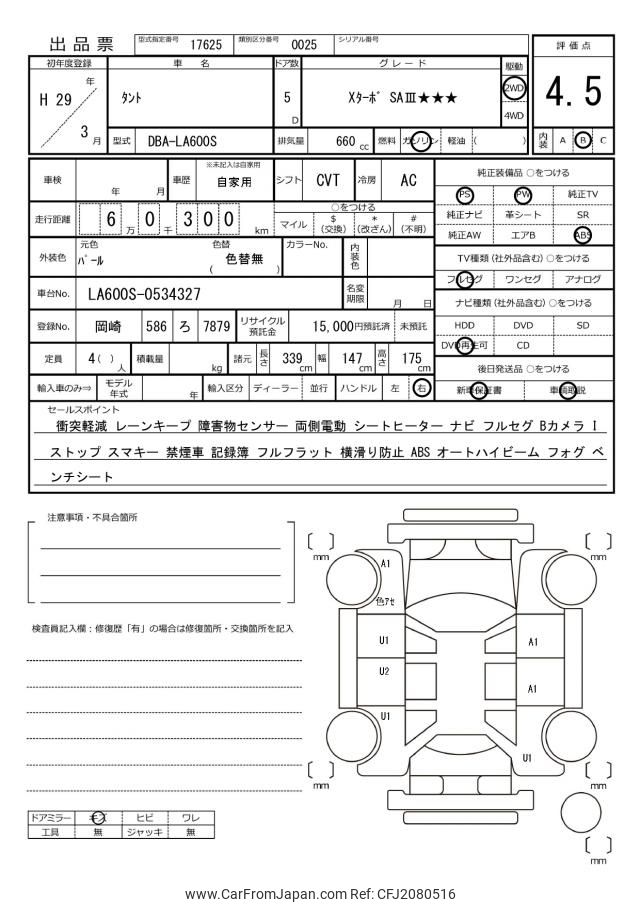 出品票 型式指定番号 17625 類別区分番号 0025 シリアル番号
評価点
4.5
初年度登録 車名 ドア数 グレード 駆動
H 29 年 / 3 月 タント 5 D Xターボ SAⅢ★★★ 2WD 4WD
型式 DBA-LA600S 排気量 660 cc 燃料 ガソリン 軽油 ( ) 内装 A B C
車検 年 月 車歴 ※未記入は自家用 自家用 シフト CVT 冷房 AC
走行距離 6 万 0 千 3 0 0 km ○をつける
マイル $(交換) *(改ざん) #(不明)
外装色 元色 パール 色替 ( 色替無 ) カラーNo. 内装色
車台No. LA600S-0534327 名変期限 月 日
登録No. 岡崎 586 ろ 7879 リサイクル預託金 15,000円預託済 未預託
定員 4 ( ) 人 積載量 kg 諸元 長さ 339 cm 幅 147 cm 高さ 175 cm
輸入車のみ⇒ モデル年式 年 輸入区分 ディーラー 並行 ハンドル 左 右
純正装備品 ○をつける
PS PW 純正TV
純正ナビ 革シート SR
純正AW エアB ABS
TV種類 (社外品含む) ○をつける
フルセグ ワンセグ アナログ
ナビ種類 (社外品含む) ○をつける
HDD DVD SD
DVD再生可 CD
後日発送品 ○をつける
新車保証書 車輌取説
セールスポイント
衝突軽減 レーンキープ 障害物センサー 両側電動 シートヒーター ナビ フルセグ Bカメラ I
ストップ スマキー 禁煙車 記録簿 フルフラット 横滑り防止 ABS オートハイビーム フォグ ベ
ンチシート
注意事項・不具合箇所
検査員記入欄：修復歴「有」の場合は修復箇所・交換箇所を記入
ドアミラー キズ ヒビ ワレ
工具 無 ジャッキ 無
mm
mm
A1
色アセ
U1
A1
U2
A1
U1
U1
mm
mm
mm
www.CarFromJapan.com Ref: CFJ2080516